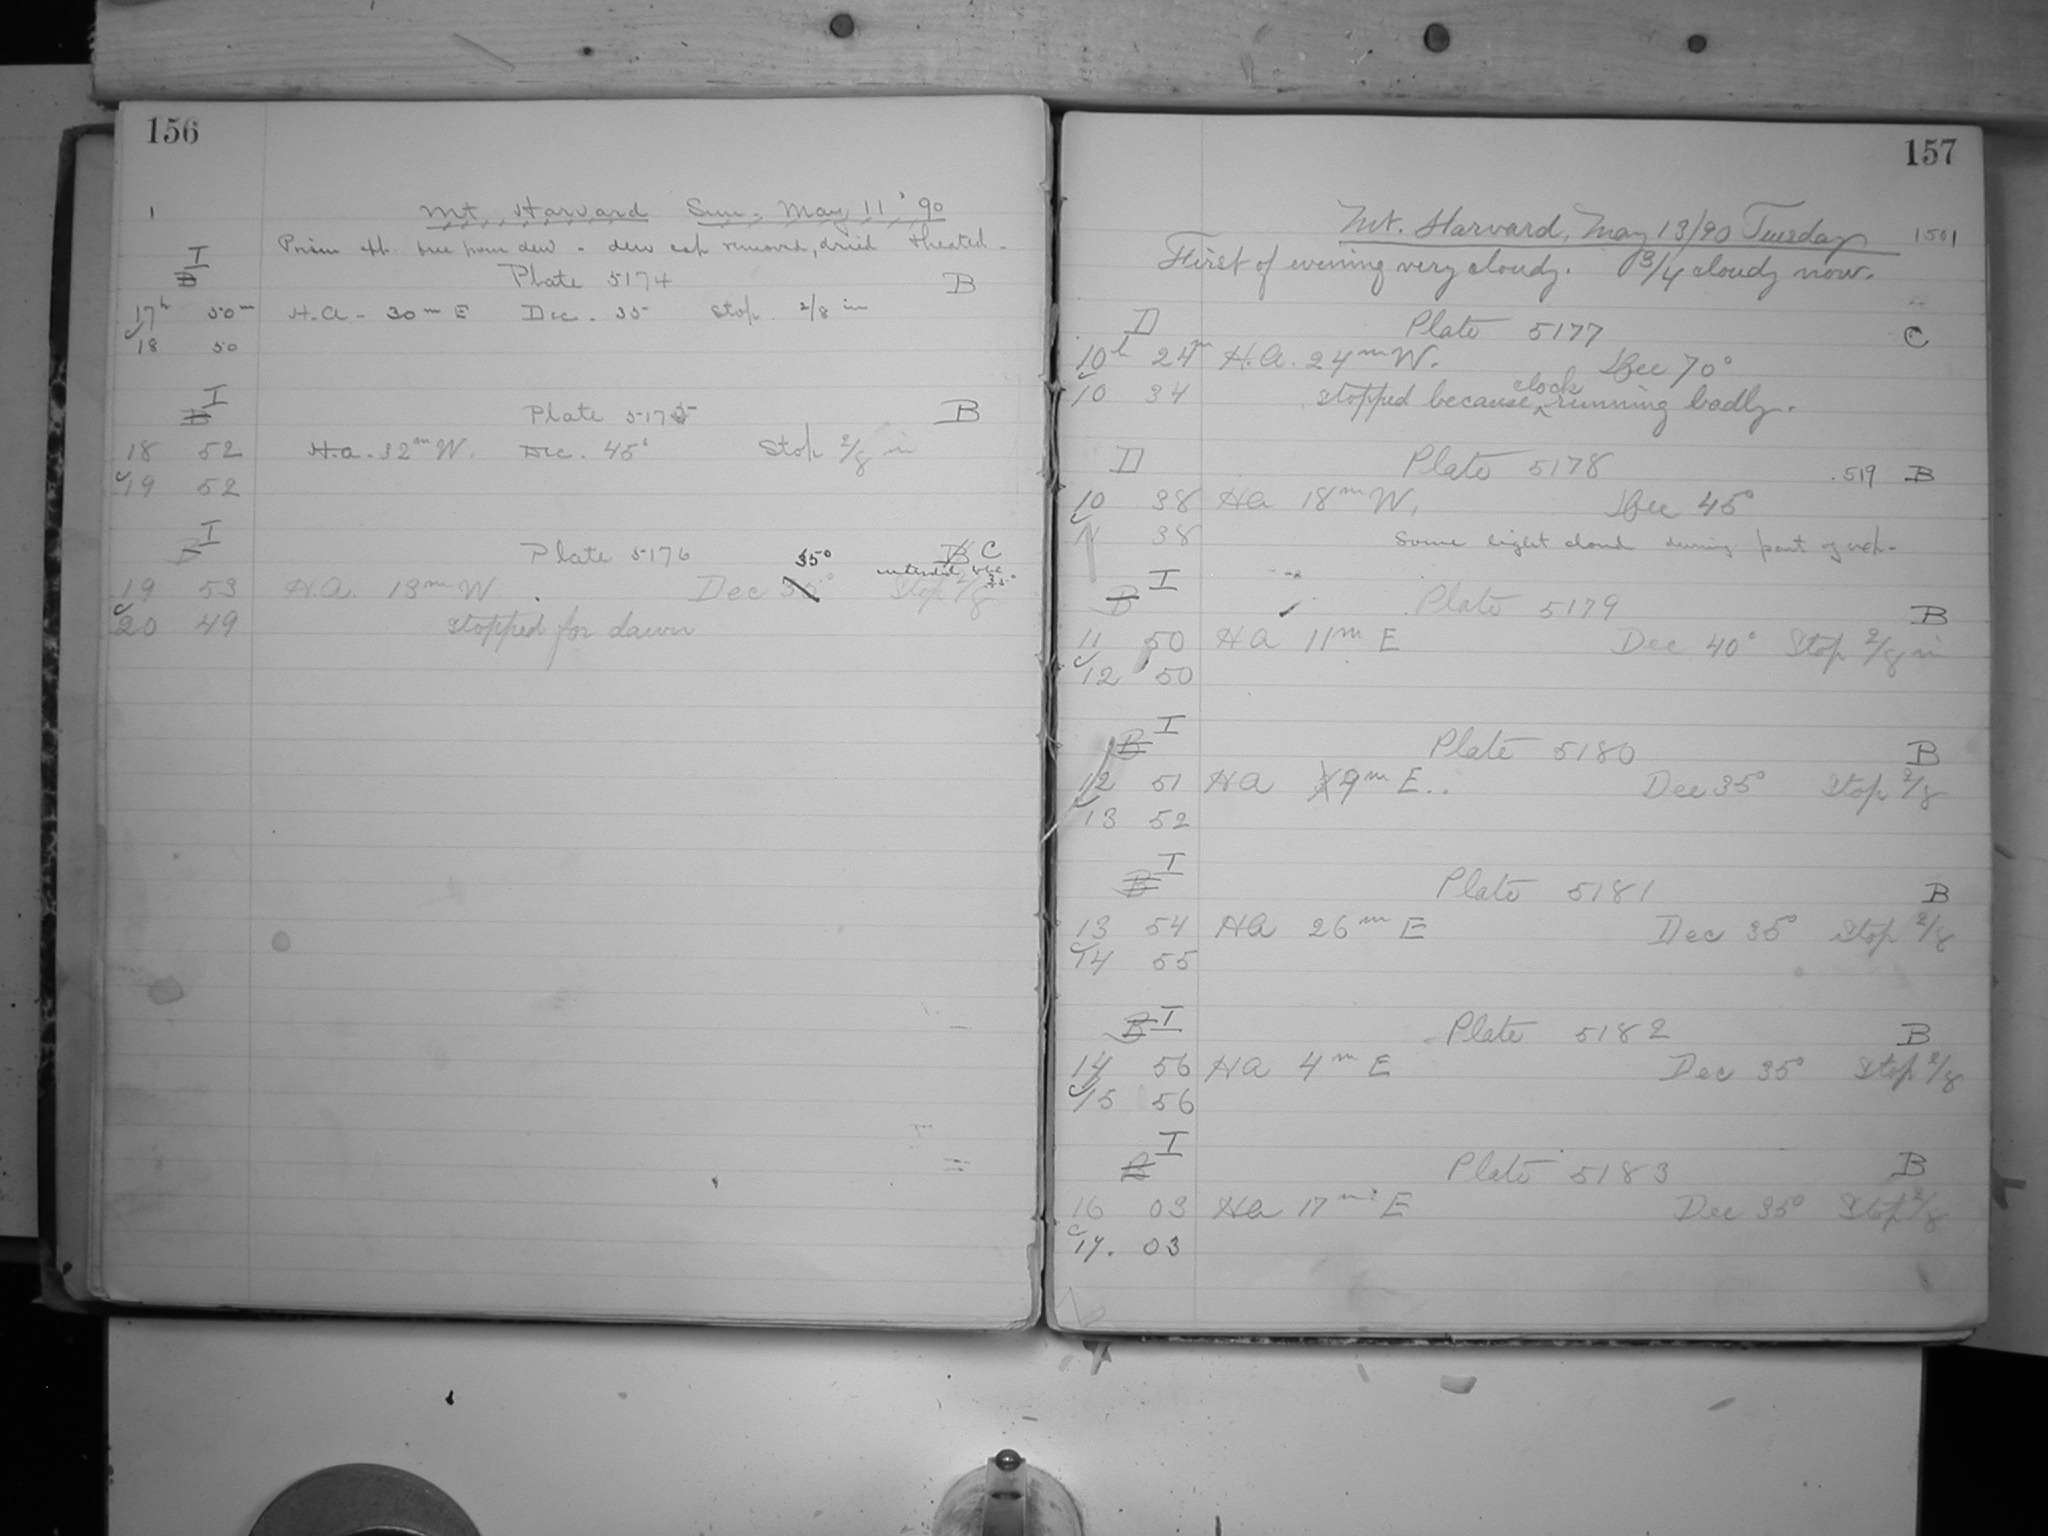 156
1
Mt. Harvard Sun. May 11 '90
Prism app. free from dew - dew cap removed, dried & heated -
I
B Plate 5174 B
17h 50m H.A. - 30m E Dec. - 35 Stop. 2/8 in
18 50
I
B Plate 5175 B
18 52 H.a. 32m W. Dec. 45° Stop 2/8 in
19 52
I
B Plate 5176 35° B C
19 53 H.A. 13m W. Dec 30° Stop 2/8
20 49 stopped for dawn
157
Mt. Harvard, May 13/90 Tuesday 1501
First of evening very cloudy. 3/4 cloudy now.
D Plate 5177 C
10h 24m H.A. 24m W. Dec 70°
10 34 stopped because clock running badly.
D Plate 5178 .519 B
10 38 HA 18m W. Dec 45°
11 38 Some light cloud during part of exp.
I
B Plate 5179 B
11 50 HA 11m E Dec 40° Stop 2/8 in
12 50
I
B Plate 5180 B
12 51 HA 9m E.. Dec 35° Stop 2/8
13 52
I
B Plate 5181 B
13 54 HA 26m E Dec 35° Stop 2/8
14 55
I
B Plate 5182 B
14 56 HA 4m E Dec 35° Stop 2/8
15 56
I
B Plate 5183 B
16 03 HA 17m E Dec 35° Stop 2/8
17. 03